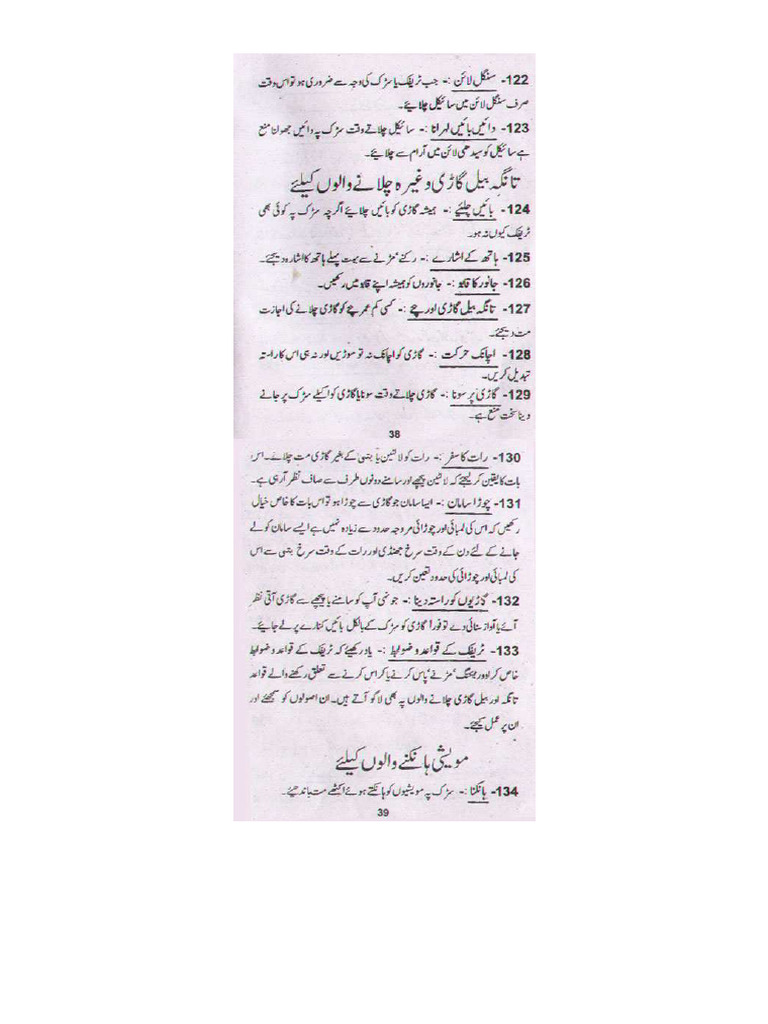 122- سنگل لائن :- جب ٹریفک یا سڑک کی وجہ سے ضروری ہو تو اس وقت
صرف سنگل لائن میں سائیکل چلائیے۔
123- دائیں بائیں لہرانا :- سائیکل چلاتے وقت سڑک پہ دائیں جھولنا منع
ہے سائیکل کو سیدھی لائن میں آرام سے چلائیے۔
تانگہ بیل گاڑی وغیرہ چلانے والوں کیلئے
124- بائیں چلیئے :- ہمیشہ گاڑی کو بائیں چلائیے اگرچہ سڑک پہ کوئی بھی
ٹریفک کیوں نہ ہو۔
125- ہاتھ کے اشارے :- رکنے‘ مڑنے سے بہت پہلے ہاتھ کا اشارہ دیجئے۔
126- جانور کا قابو :- جانوروں کو ہمیشہ اپنے قابو میں رکھیں۔
127- تانگہ بیل گاڑی اور بچے :- کسی کم عمر بچے کو گاڑی چلانے کی اجازت
مت دیجئے۔
128- اچانک حرکت :- گاڑی کو اچانک نہ تو موڑیں اور نہ ہی اس کا راستہ
تبدیل کریں۔
129- گاڑی پر سونا :- گاڑی چلاتے وقت سونا یا گاڑی کو اکیلے سڑک پر جانے
دینا سخت منع ہے۔
38
130- رات کا سفر :- رات کو لالٹین یا بتی کے بغیر گاڑی مت چلائے۔ اس
بات کا یقین کر لیجئے کہ لالٹین پیچھے اور سامنے دونوں طرف سے صاف نظر آرہی ہے۔
131- چوڑا سامان :- ایسا سامان جو گاڑی سے چوڑا ہو تو اس بات کا خاص خیال
رکھیں کہ اس کی لمبائی اور چوڑائی مروجہ حدود سے زیادہ نہیں ہے ایسے سامان کو لے
جانے کے لئے دن کے وقت سرخ جھنڈی اور رات کے وقت سرخ بتی سے اس
کی لمبائی اور چوڑائی کی حدود تعین کریں۔
132- گاڑیوں کو راستہ دینا :- جونہی آپ کو سامنے یا پیچھے سے گاڑی آتی نظر
آئے یا آواز سنائی دے تو فورا گاڑی کو سڑک کے بالکل بائیں کنارے پر لے جائیے۔
133- ٹریفک کے قواعد و ضوابط :- یاد رکھیئے کہ ٹریفک کے قواعد و ضوابط
خاص کر اوور ٹیکنگ‘ مڑنے‘ پاس کرنے یا کراس کرنے سے تعلق رکھنے والے قواعد
تانگہ اور بیل گاڑی چلانے والوں پہ بھی لاگو آتے ہیں۔ ان اصولوں کو سمجھئے اور
ان پر عمل کیجئے۔
مویشی ہانکنے والوں کیلئے
134- ہانکنا :- سڑک پہ مویشیوں کو ہانکتے ہوئے اکٹھے مت باندھیئے۔
39